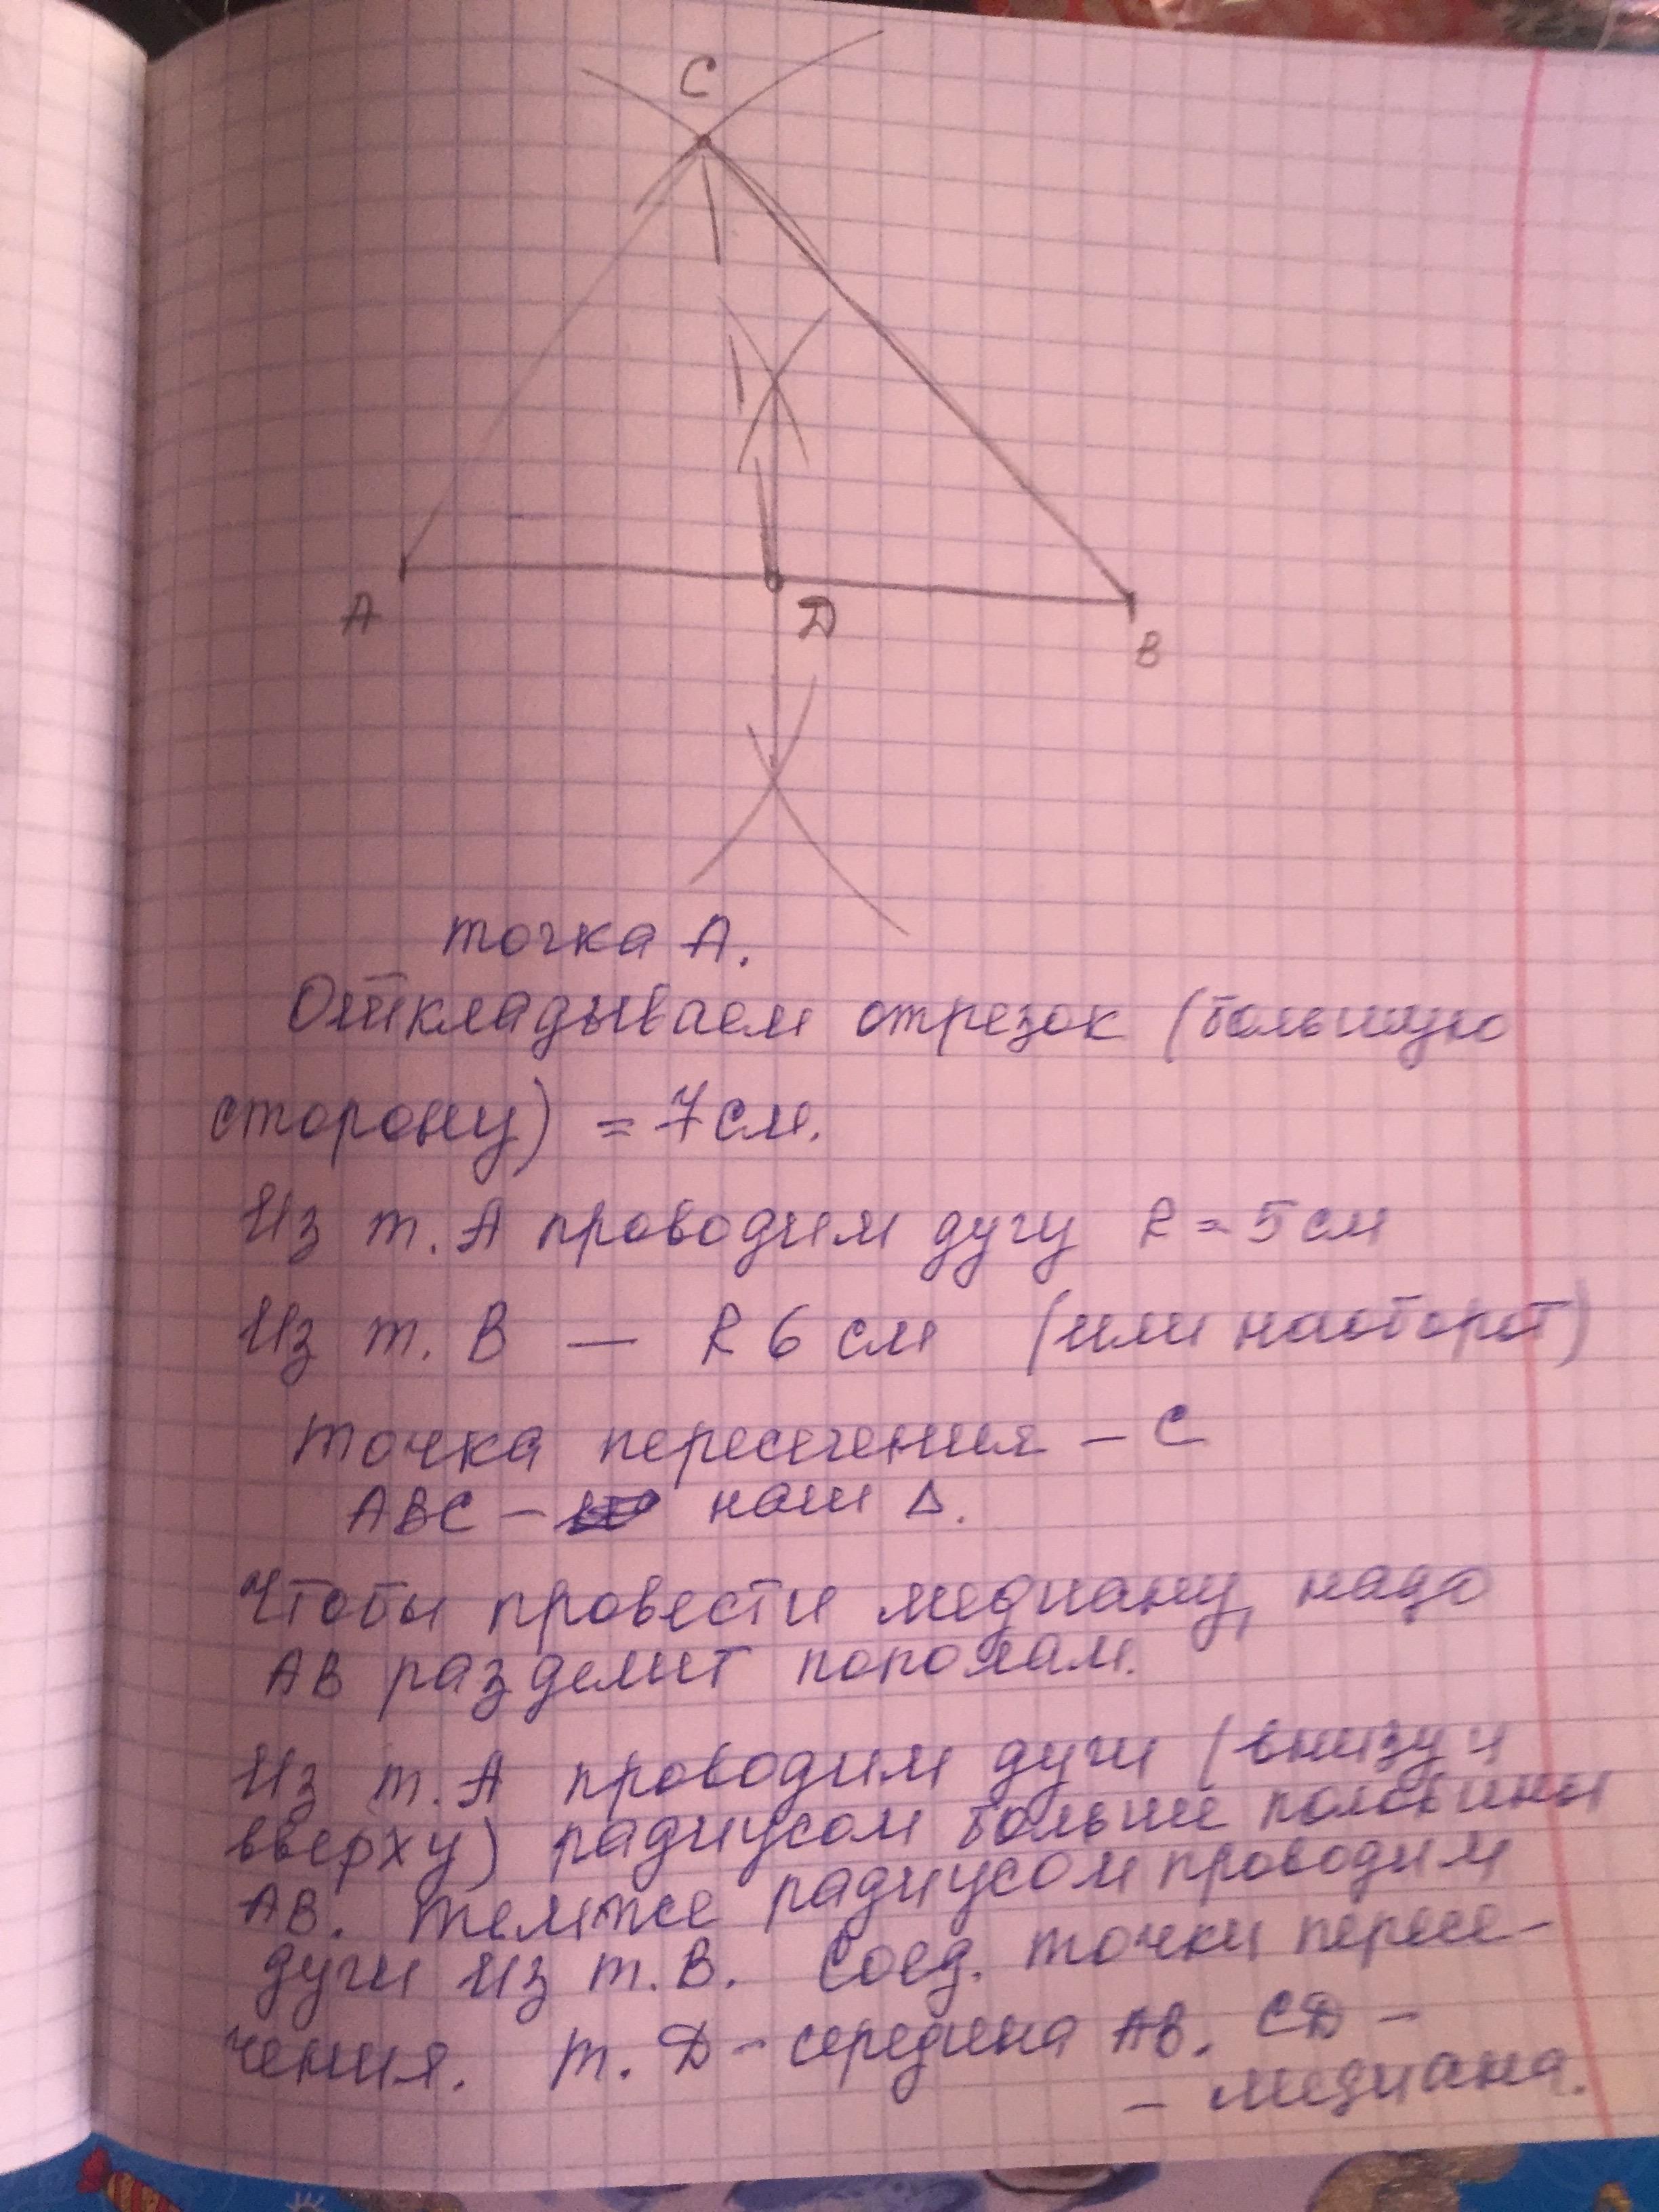 C
A
D
B
точка А.
Откладываем отрезок (большую
сторону) = 7см.
Из т. А проводим дугу R = 5 см
Из т. В — R 6 см (или наоборот)
Точка пересечения – С
АВС – наш Δ.
Чтобы провести медиану, надо
АВ разделит пополам.
Из т. А проводим дуги (внизу и
вверху) радиусом больше половины
АВ. Тем же радиусом проводим
дуги из т. В. Соед. точки пересе-
чения. т. D – середина АВ. CD –
– медиана.